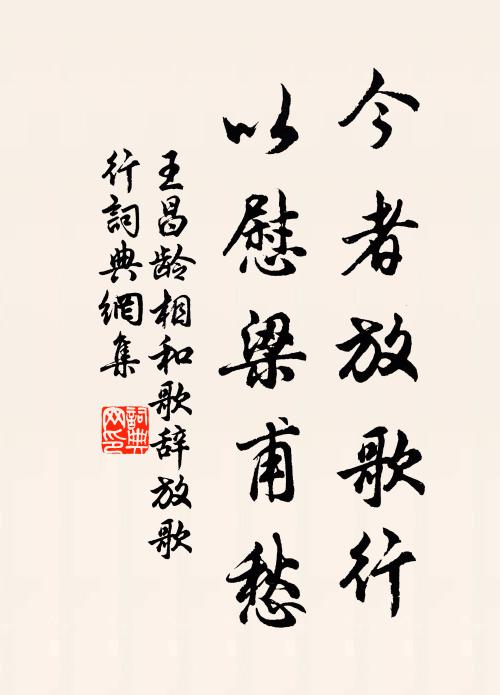 今者放歌行
以慰梁甫愁
王昌龄相和歌辞放歌
行詞典網集
詞典
网印